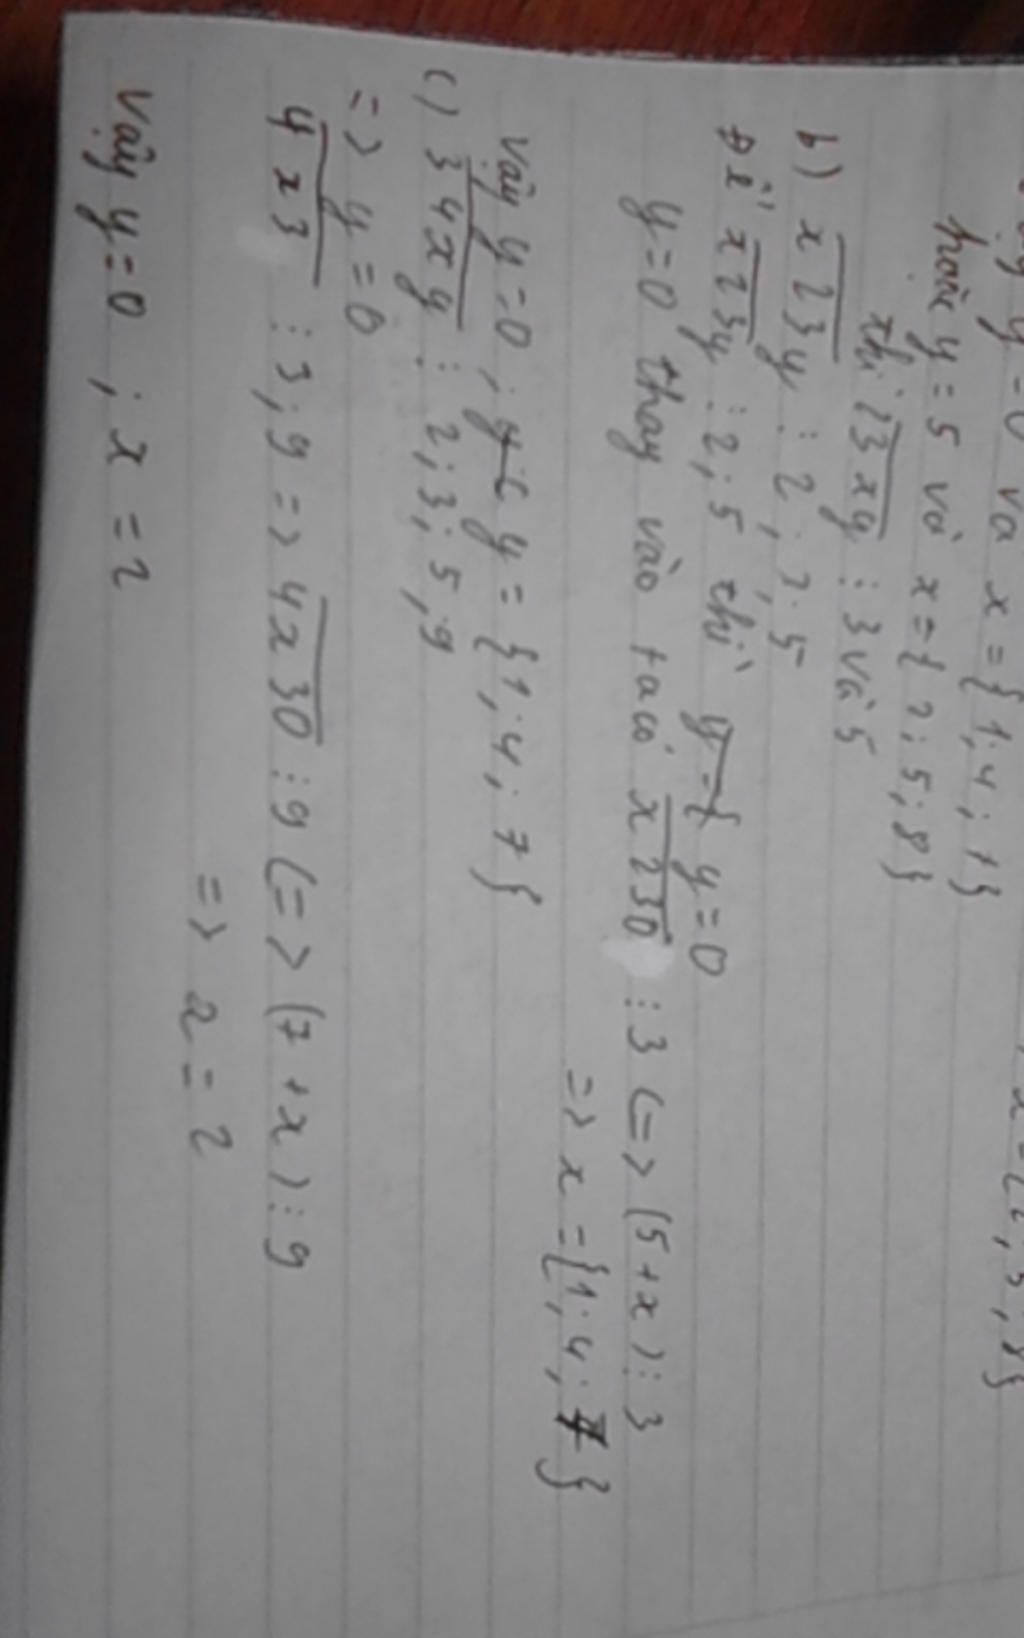 y = 0 và x = {1; 4; 7}
hoặc y = 5 và x = { 2; 5; 8}
thì 13xy ⋮ 3 và 5
b) x23y ⋮ 2; 3; 5
Để x23y ⋮ 2; 5 thì y = 0
y = 0 thay vào ta có x230 ⋮ 3 <=> (5 + x) ⋮ 3
=> x = {1; 4; 7}
Vậy y = 0; y = {1; 4; 7}
c) 34xy ⋮ 2; 3; 5; 9
=> y = 0
4x3 ⋮ 3; 9 => 4x30 ⋮ 9 <=> (7 + x) ⋮ 9
=> x = 2
Vậy y = 0; x = 2